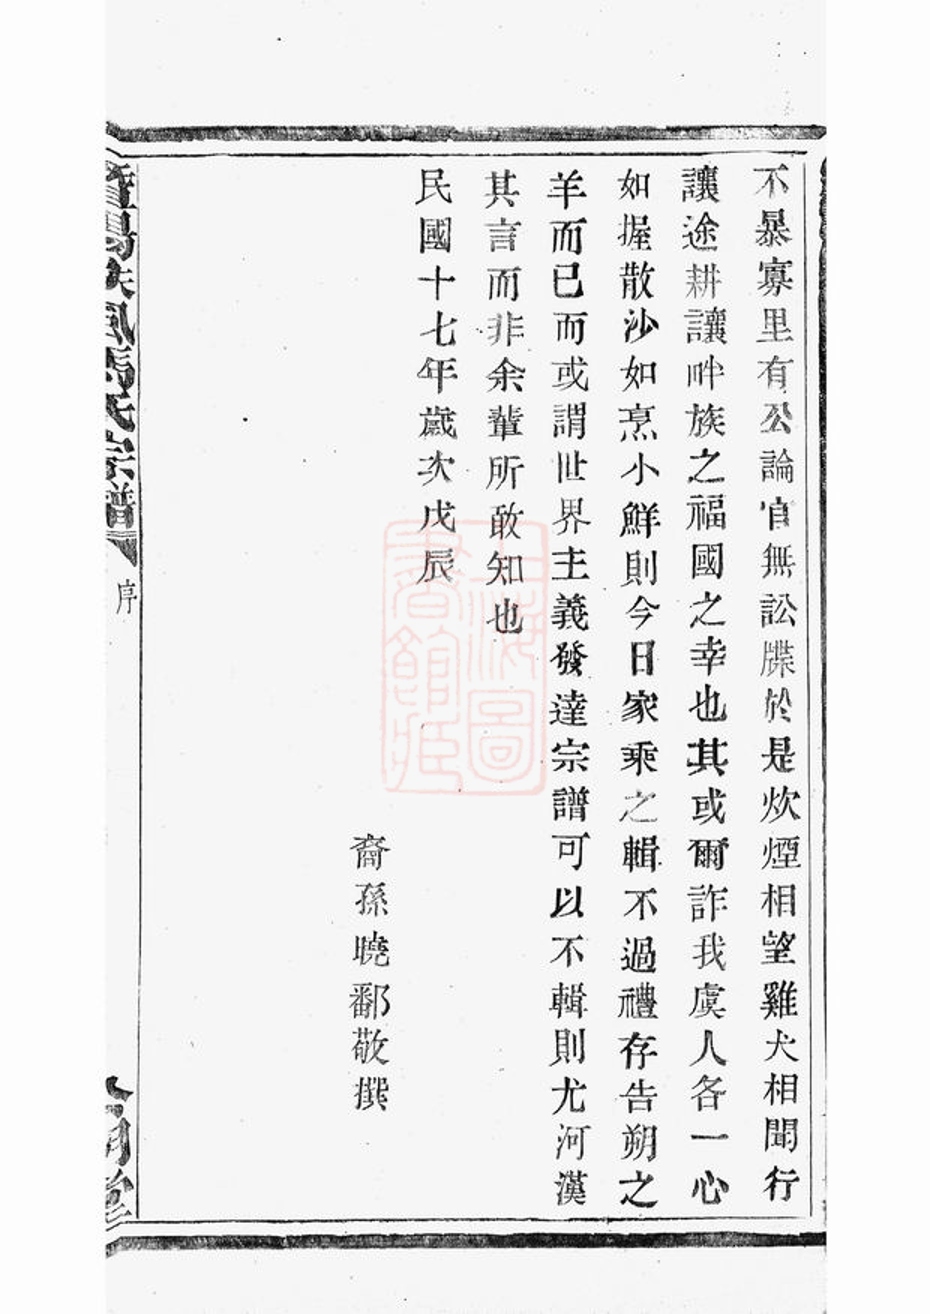 不暴寡里有公論官無訟牒於是炊煙相望雞犬相聞行
讓途耕讓畔族之福國之幸也其或爾詐我虞人各一心
如握散沙如烹小鮮則今日家乘之輯不過禮存告朔之
羊而已而或謂世界主義發達宗譜可以不輯則尤河漢
其言而非余輩所敢知也
民國十七年歲次戊辰
裔孫曉鄱敬撰
暨陽扶風馬氏宗譜
序
上海圖
書館庭